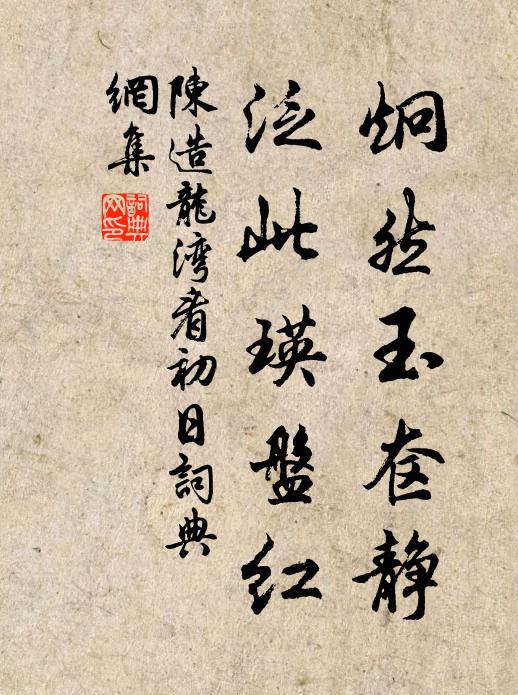 炯然玉奁静
泛此瑛盤红
陳造龍湾看初日詞典
網集
詞典网印